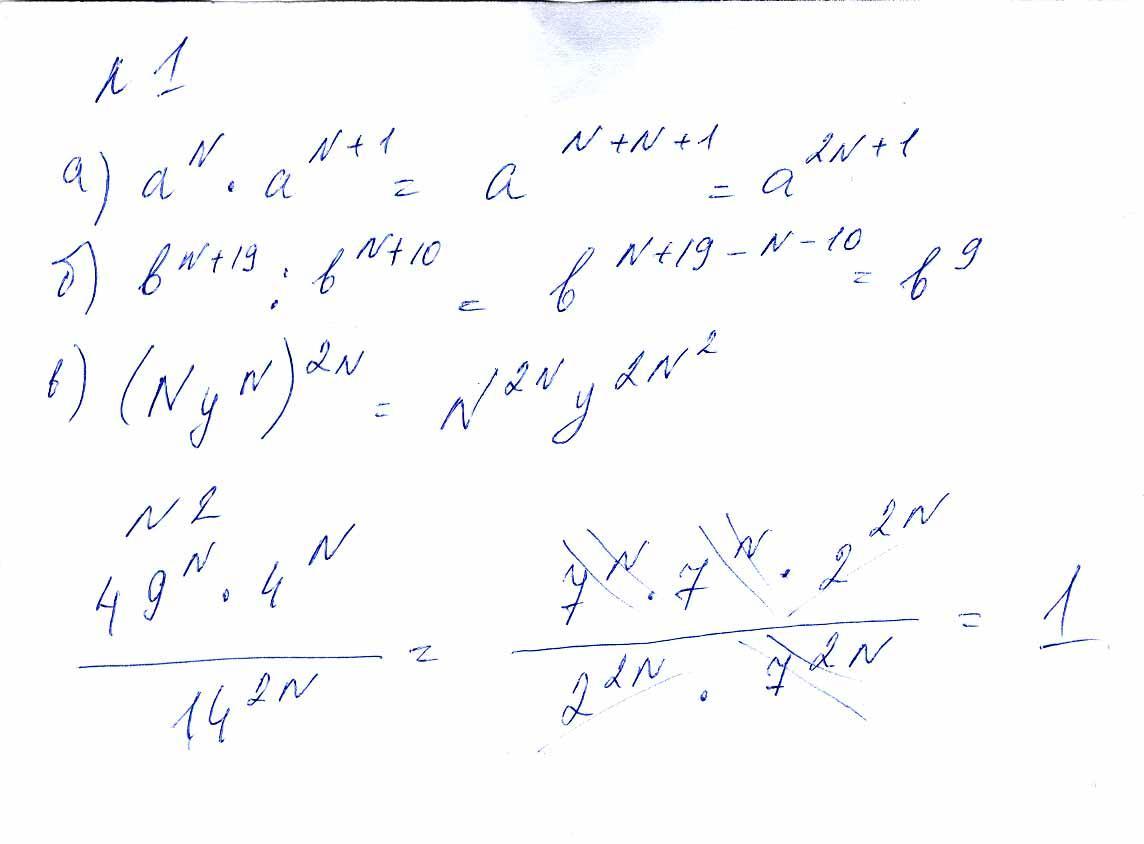 N 1
а) a^N · a^{N+1} = a^{N+N+1} = a^{2N+1}
б) b^{N+19} : b^{N+10} = b^{N+19-N-10} = b^9
в) (Ny^N)^{2N} = N^{2N} y^{2N^2}
N 2
49^N · 4^N / 14^{2N} = 7^N · 7^N · 2^{2N} / 2^{2N} · 7^{2N} = 1